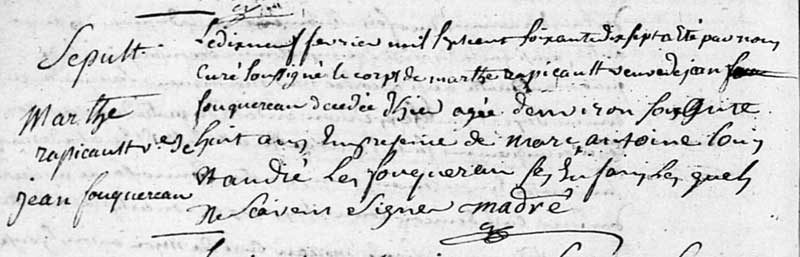 Sepult
Marthe
rapicault ve de
jean fouquereau
Le dixneuf fevrier mil sept cent soixante dix sept a été par nous
Curé soussigné le corps de marthe rapicault veuve de jean
fouquereau decedée d'hier agée denviron soixante
huit ans En presence de marc, antoine louis
Et andré Les fouquereau ses Enfans Les quels
Ne scavent signer madré